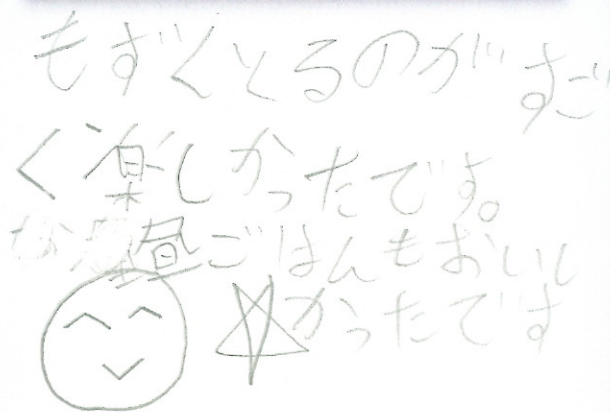 もずくとるのがすご
く楽しかったです。
昼ごはんもおいし
かったです